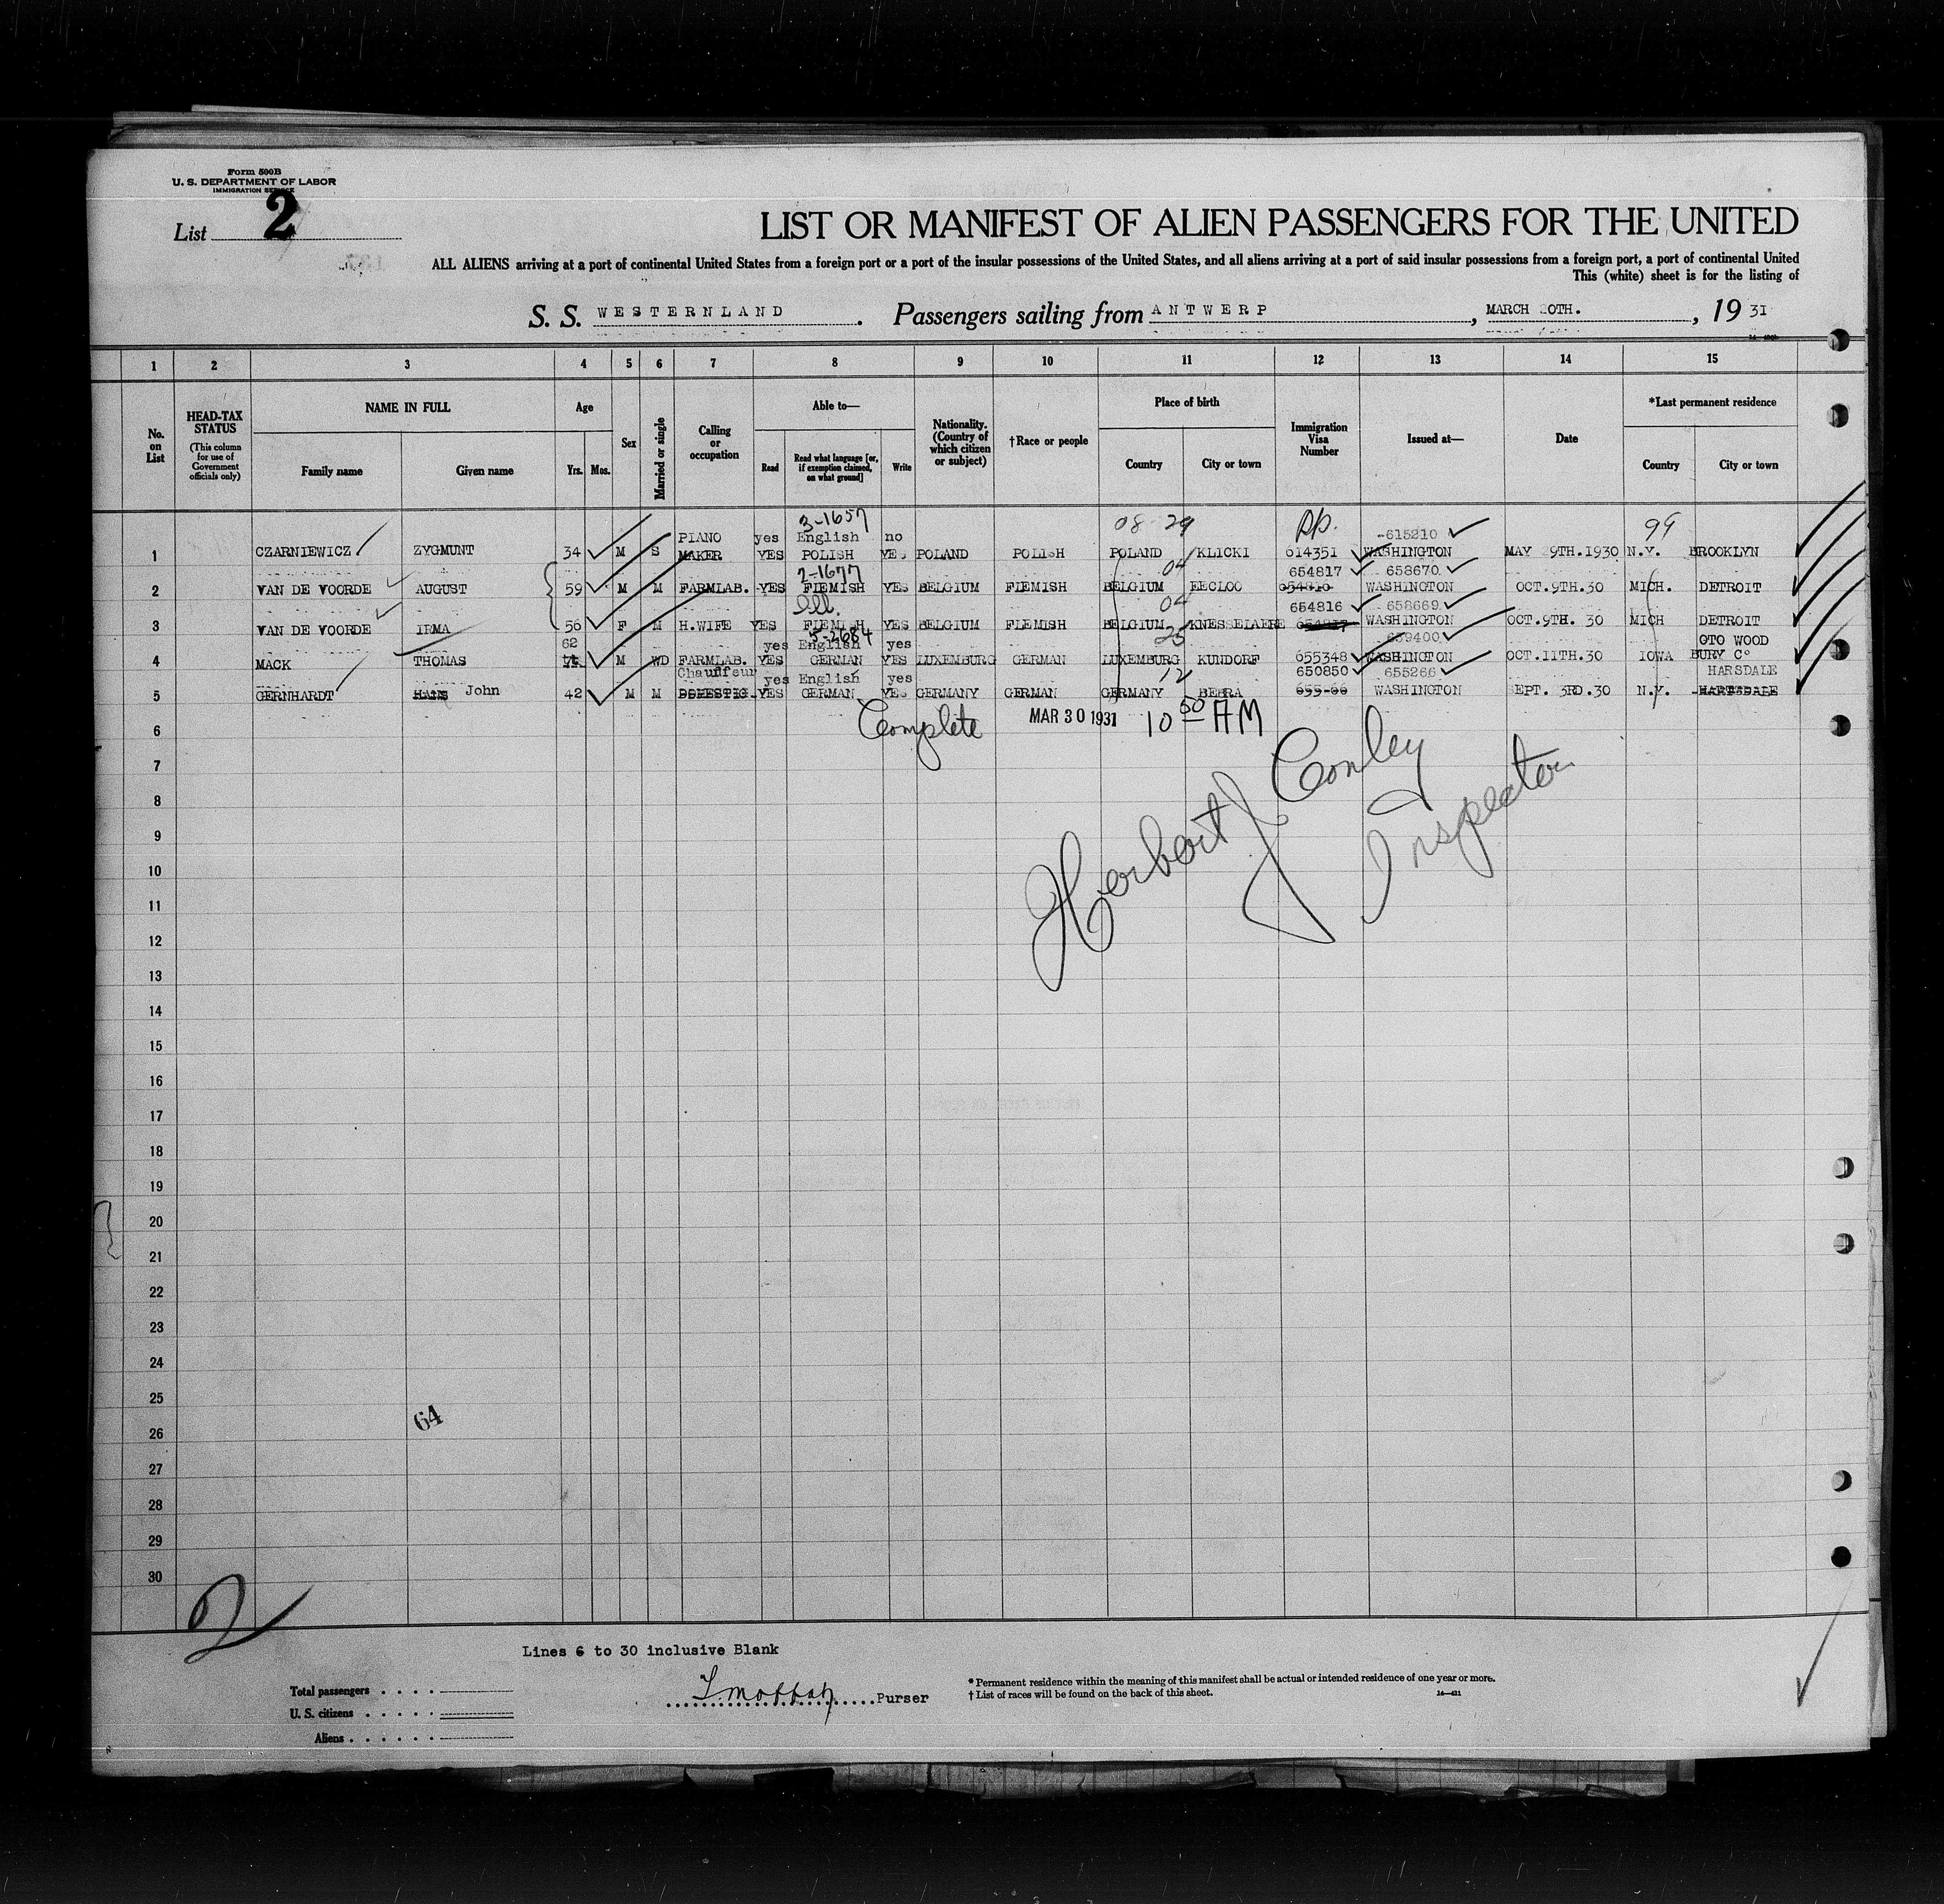 Form 500B
U. S. DEPARTMENT OF LABOR
IMMIGRATION SERVICE
List 2
LIST OR MANIFEST OF ALIEN PASSENGERS FOR THE UNITED
ALL ALIENS arriving at a port of continental United States from a foreign port or a port of the insular possessions of the United States, and all aliens arriving at a port of said insular possessions from a foreign port, a port of continental United
This (white) sheet is for the listing of
S. S. WESTERNLAND. Passengers sailing from ANTWERP, MARCH OTH., 19 31
1 2 3 4 5 6 7 8 9 10 11 12 13 14 15
No. on List
HEAD-TAX STATUS
(This column for use of Government officials only)
NAME IN FULL
Family name
Given name
Age
Yrs.
Mos.
Sex
Married or single
Calling or occupation
Able to—
Read
Read what language [or, if exemption claimed, on what ground]
Write
Nationality. (Country of which citizen or subject)
†Race or people
Place of birth
Country
City or town
Immigration Visa Number
Issued at—
Date
*Last permanent residence
Country
City or town
3-1657 08 29 99
PIANO yes English no -615210
1 CZARNIEWICZ ZYGMUNT 34 M S MAKER YES POLISH YES POLAND POLISH POLAND KLICKI 614351 WASHINGTON MAY 9TH.1930 N.Y. BROOKLYN
2-1677 04 654817 658670
2 VAN DE VOORDE AUGUST 59 M M FARMLAB. YES FLEMISH YES BELGIUM FLEMISH BELGIUM EECLOO WASHINGTON OCT.9TH.30 MICH. DETROIT
04 654816 658669
3 VAN DE VOORDE IRMA 56 F M H.WIFE YES FLEMISH YES BELGIUM FLEMISH BELGIUM KNESSELAERE WASHINGTON OCT.9TH. 30 MICH DETROIT
62 5-2684 yes English yes 25 659400 OTO WOOD
4 MACK THOMAS M WD FARMLAB. YES GERMAN YES LUXEMBURG GERMAN LUXEMBURG KUNDORF 655348 WASHINGTON OCT.11TH.30 IOWA BURY Co
Chauffeur yes English yes 12 650850 655266 HARSDALE
5 GERNHARDT HANS John 42 M M DOMESTIC YES GERMAN YES GERMANY GERMAN GERMANY BEBRA 655-66 WASHINGTON SEPT. 3RD.30 N.Y. HARTSDALE
6 Complete MAR 30 1931 10 50 AM
Herbert J Conley
Inspector
7
8
9
10
11
12
13
14
15
16
17
18
19
20
21
22
23
24
25
64
26
27
28
29
30
2
Lines 6 to 30 inclusive Blank
Total passengers
U. S. citizens
Aliens
Purser
* Permanent residence within the meaning of this manifest shall be actual or intended residence of one year or more.
† List of races will be found on the back of this sheet.